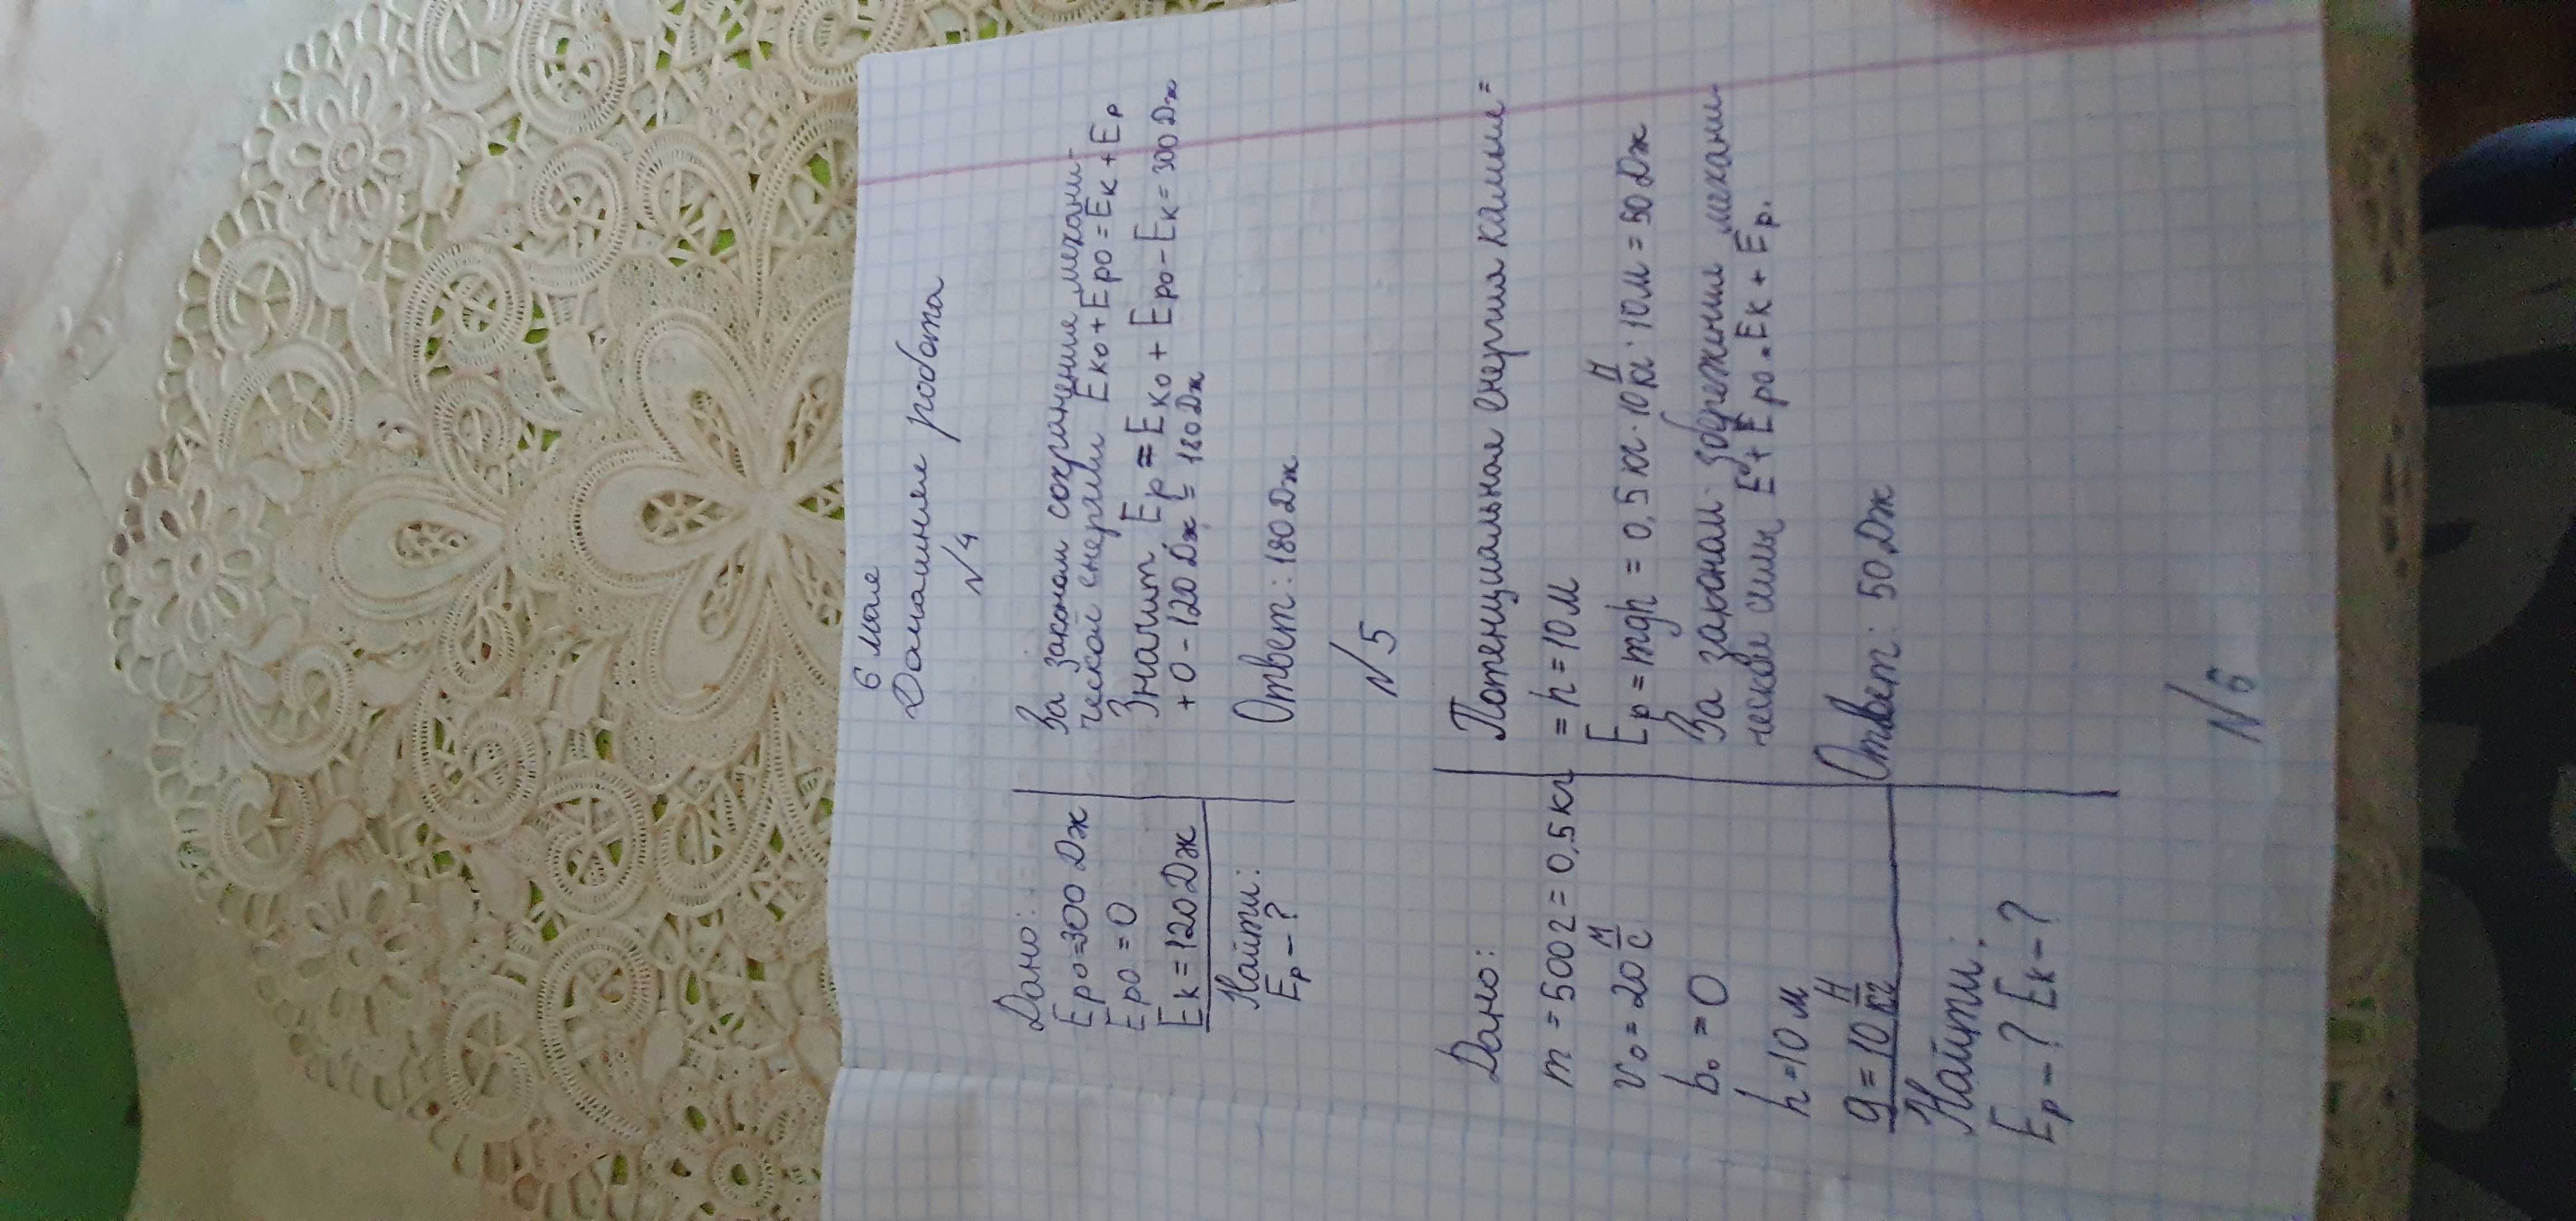 6 мая
Домашняя робота
N 4
Дано:
Eро=300 Дж
Eро = 0
Eк = 120 Дж
Найти:
Eр – ?
За законом сохранение механи-
ческой енергии Eко + Eро = Eк + Eр
Значит, Eр = Eко + Eро – Eк = 300 Дж
+ 0 – 120 Дж = 180 Дж
Ответ: 180 Дж
N 5
Дано:
m = 500 г = 0,5 кг
v₀ = 20 м/с
h₀ = 0
h = 10 м
g = 10 Н/кг
Найти:
Eр – ? Eк – ?
Потенциальная енергия камня =
= h = 10 м
Eр = mgh = 0,5 кг · 10 Н/кг · 10 м = 50 Дж
За законом збережиния механи-
ческой силы E + Eро = Eк + Eр.
Ответ: 50 Дж
N 6